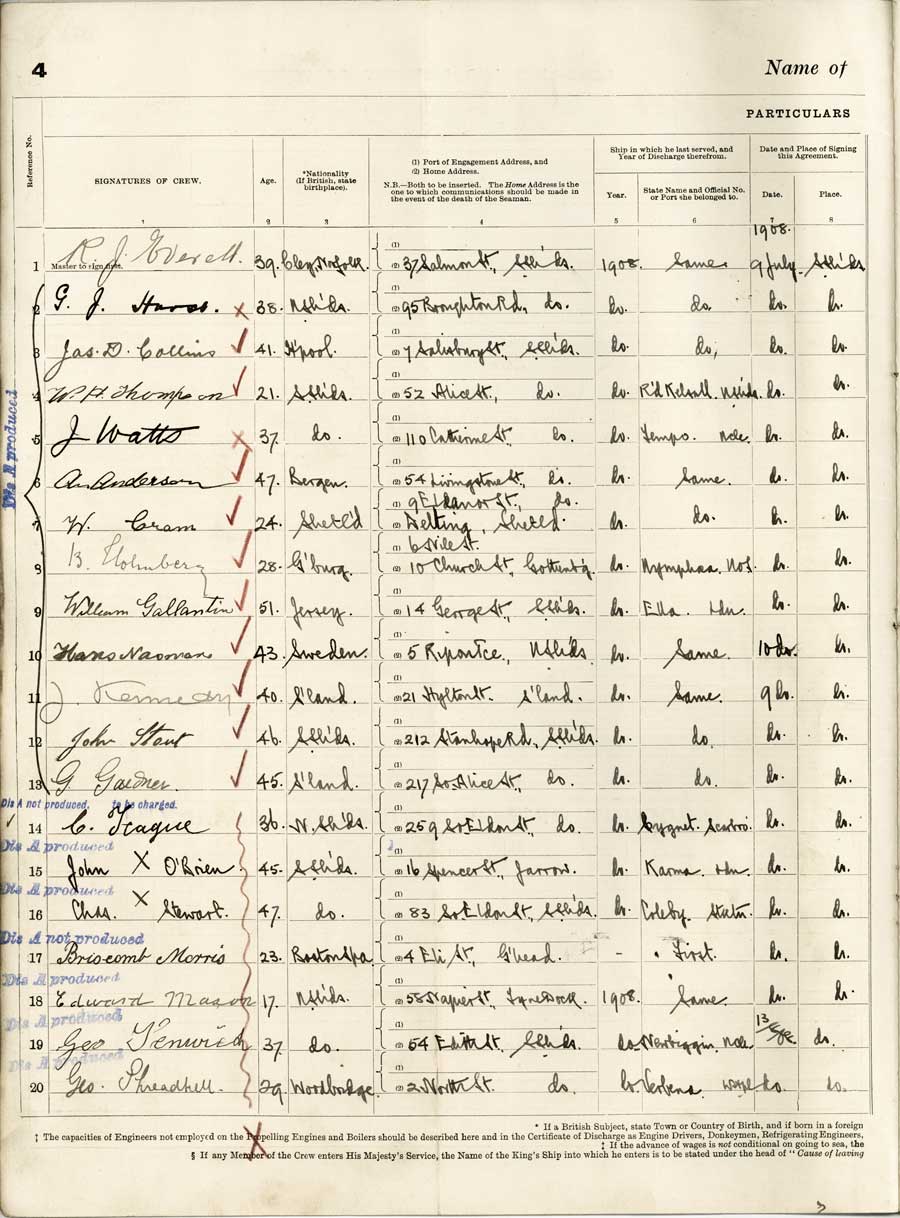 4
Name of
PARTICULARS
Reference No.
SIGNATURES OF CREW.
Age.
*Nationality (If British, state birthplace).
(1) Port of Engagement Address, and
(2) Home Address.
N.B.—Both to be inserted. The Home Address is the one to which communications should be made in the event of the death of the Seaman.
Ship in which he last served, and Year of Discharge therefrom.
Year.
State Name and Official No. or Port she belonged to.
Date and Place of Signing this Agreement.
Date.
Place.
1 2 3 4 5 6 7 8
1908.
(1)
1 R. J. Everett. Master to sign first. 39. Cley, Norfolk. (2) 37 Salmon St., S Shlds. 1908. Same 9 July S Shlds
(1)
2 G. J. 38. N Shlds. (2) 95 Broughton Rd., do. do. do. do. do.
(1)
3 Jas. D. Collins 41. H'pool. (2) 7 Salisbury St., S Shlds. do. do, do. do.
(1)
4 W. H. Thompson 21. S Shlds. (2) 52 Alice St., do. do. R'd Kelsall N Shlds. do. do.
(1)
5 J Watts 37. do. (2) 110 Catherine St. do. do. Tempo. Ncle. do. do.
(1)
6 Anderson 47. Bergen. (2) 54 Livingstone St., do. do. Same. do. do.
(1) 9 Eldanor St., do.
7 W. Cram 24. Shetl'd (2) Delting, Shetl'd. do. do. do. do.
(1) 6 Nile St.
8 B. Holmberg 28. G'burg. (2) 10 Church St., Gottenb'g. do. Nymphaa. do. do.
(1)
9 William Gallantin 51. Jersey. (2) 14 George St., S Shlds. do. Ella. Ldn. do. do.
(1)
10 Hans Nasman 43. Sweden. (2) 5 Ripon Tce., N Shlds do. Same. 10 do. do.
(1)
11 J. Kennedy 40. S'land. (2) 21 Hylton St. S'land. do. Same. 9 do. do.
(1)
12 John Stout 46. S Shlds. (2) 212 Stanhope Rd., S Shlds. do. do. do. do.
(1)
13 G. Gardner. 45. S'land. (2) 217 So. Alice St., do. do. do. do. do.
Dis A produced
Dis A not produced. to be charged.
(1)
14 C. Teague 36. N. Shlds. (2) 259 So Eldon St., do. do. Cygnet. Scarbro. do. do.
Dis A produced
(1)
15 John X O'Brien 45. S Shlds. (2) 16 Spencer St., Jarrow. do. Karma. Ldn. do. do.
Dis A produced
(1)
16 Chas. X Stewart. 47. do. (2) 83 So Eldon St., S Shlds. do. Coleby. do. do.
Dis A not produced
(1)
17 Briscomb Morris 23. Boston Spa (2) 4 Eli St., G'head. - First. do. do.
Dis A produced
(1)
18 Edward Mason 17. N Shlds. (2) 58 Napier St., Tyne Dock. 1908. Same. do. do.
Dis A produced
(1)
19 Geo Fenwick 37. do. (2) 54 Edith St., S Shlds. do. Newbiggin Ncle. do.
Dis A produced
(1)
20 Geo. Threadkell. 29. Woodbridge. (2) 2 North St. do. do. Verbena do. do.
* If a British Subject, state Town or Country of Birth, and if born in a foreign
† The capacities of Engineers not employed on the Propelling Engines and Boilers should be described here and in the Certificate of Discharge as Engine Drivers, Donkeymen, Refrigerating Engineers,
‡ If the advance of wages is not conditional on going to sea, the
§ If any Member of the Crew enters His Majesty's Service, the Name of the King's Ship into which he enters is to be stated under the head of "Cause of leaving